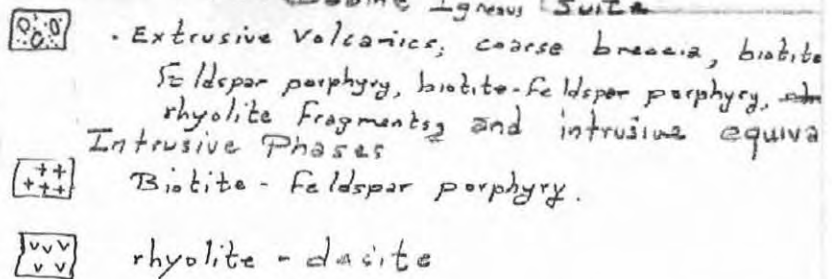 Igneous Suite
. Extrusive Volcanics, coarse breccia, biotite
Feldspar porphyry, biotite-feldspar porphyry,
rhyolite fragments, and intrusive equiva
Intrusive Phases
Biotite - Feldspar porphyry.
rhyolite - dacite